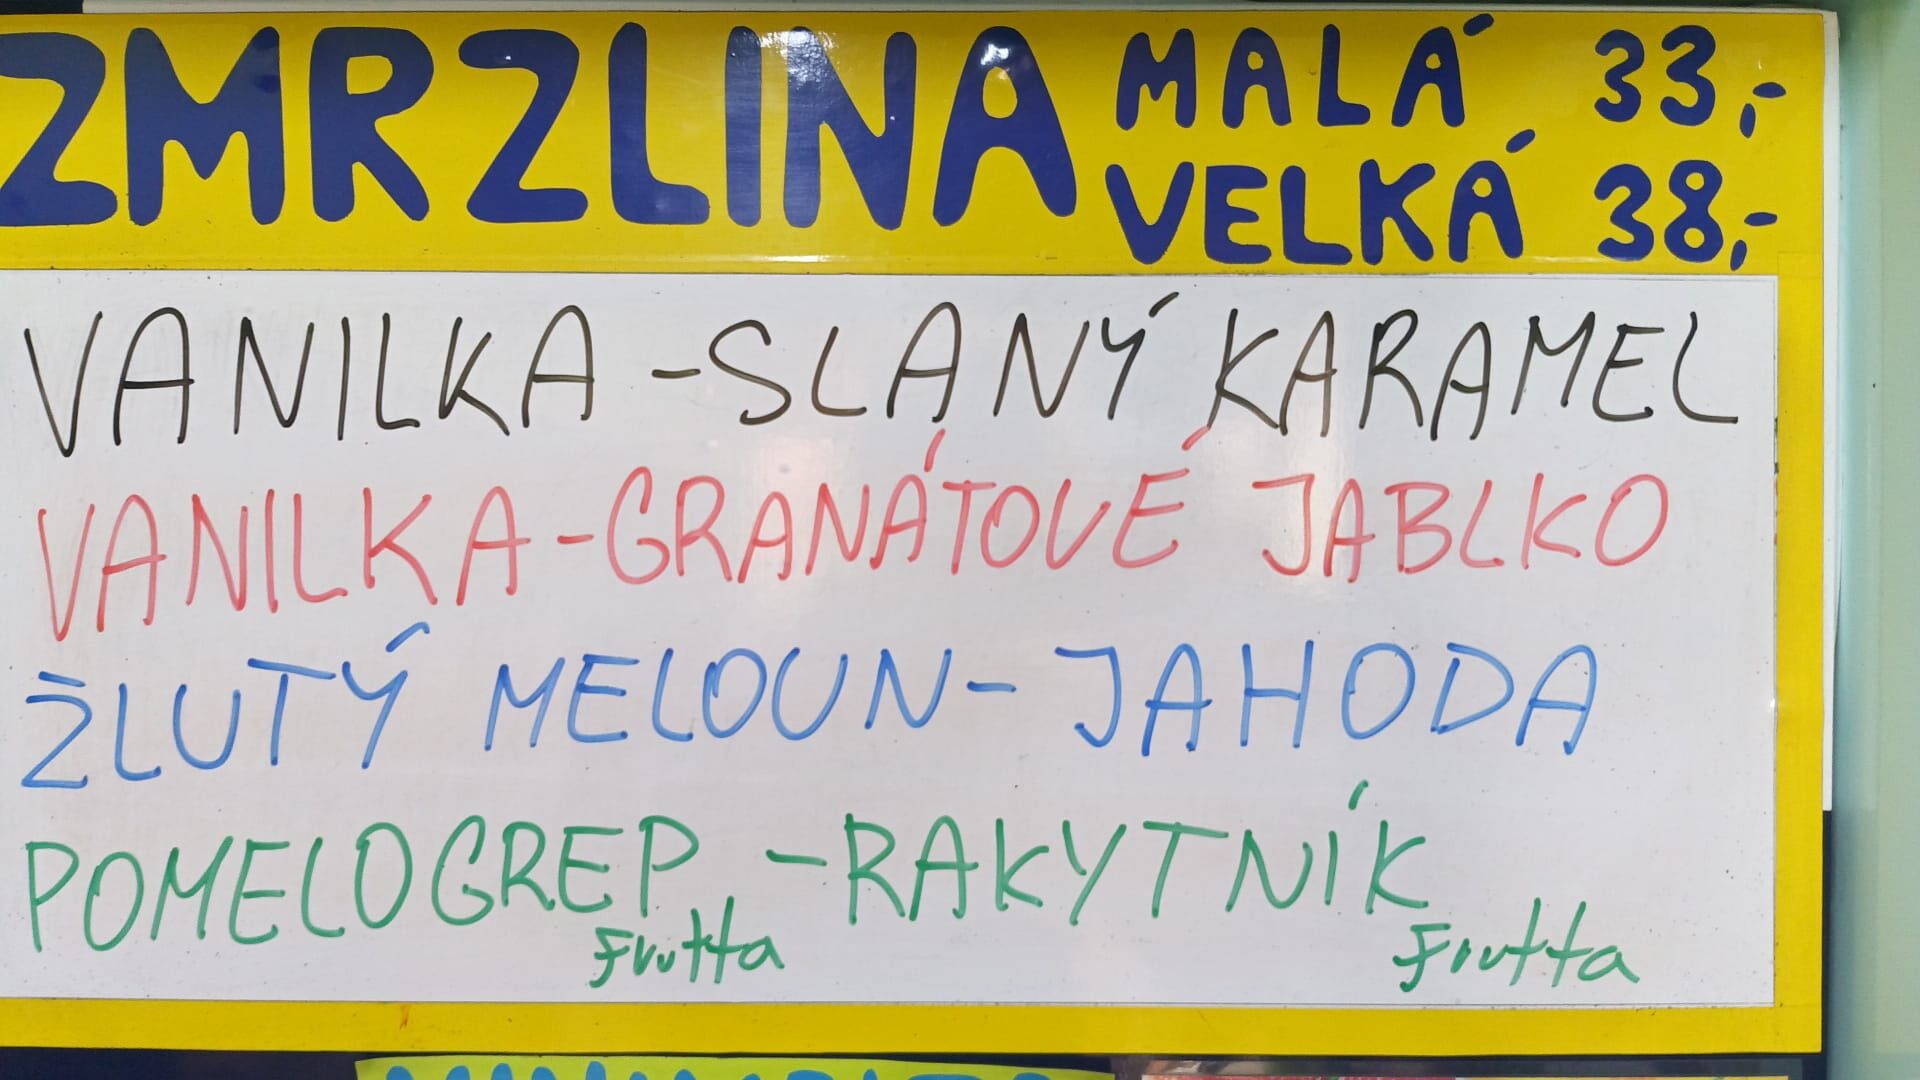 ZMRZLINA
MALÁ 33,-
VELKÁ 38,-
VANILKA - SLANÝ KARAMEL
VANILKA - GRANÁTOVÉ JABLKO
ŽLUTÝ MELOUN - JAHODA
POMELOGREP - RAKYTNÍK
Frutta Frutta